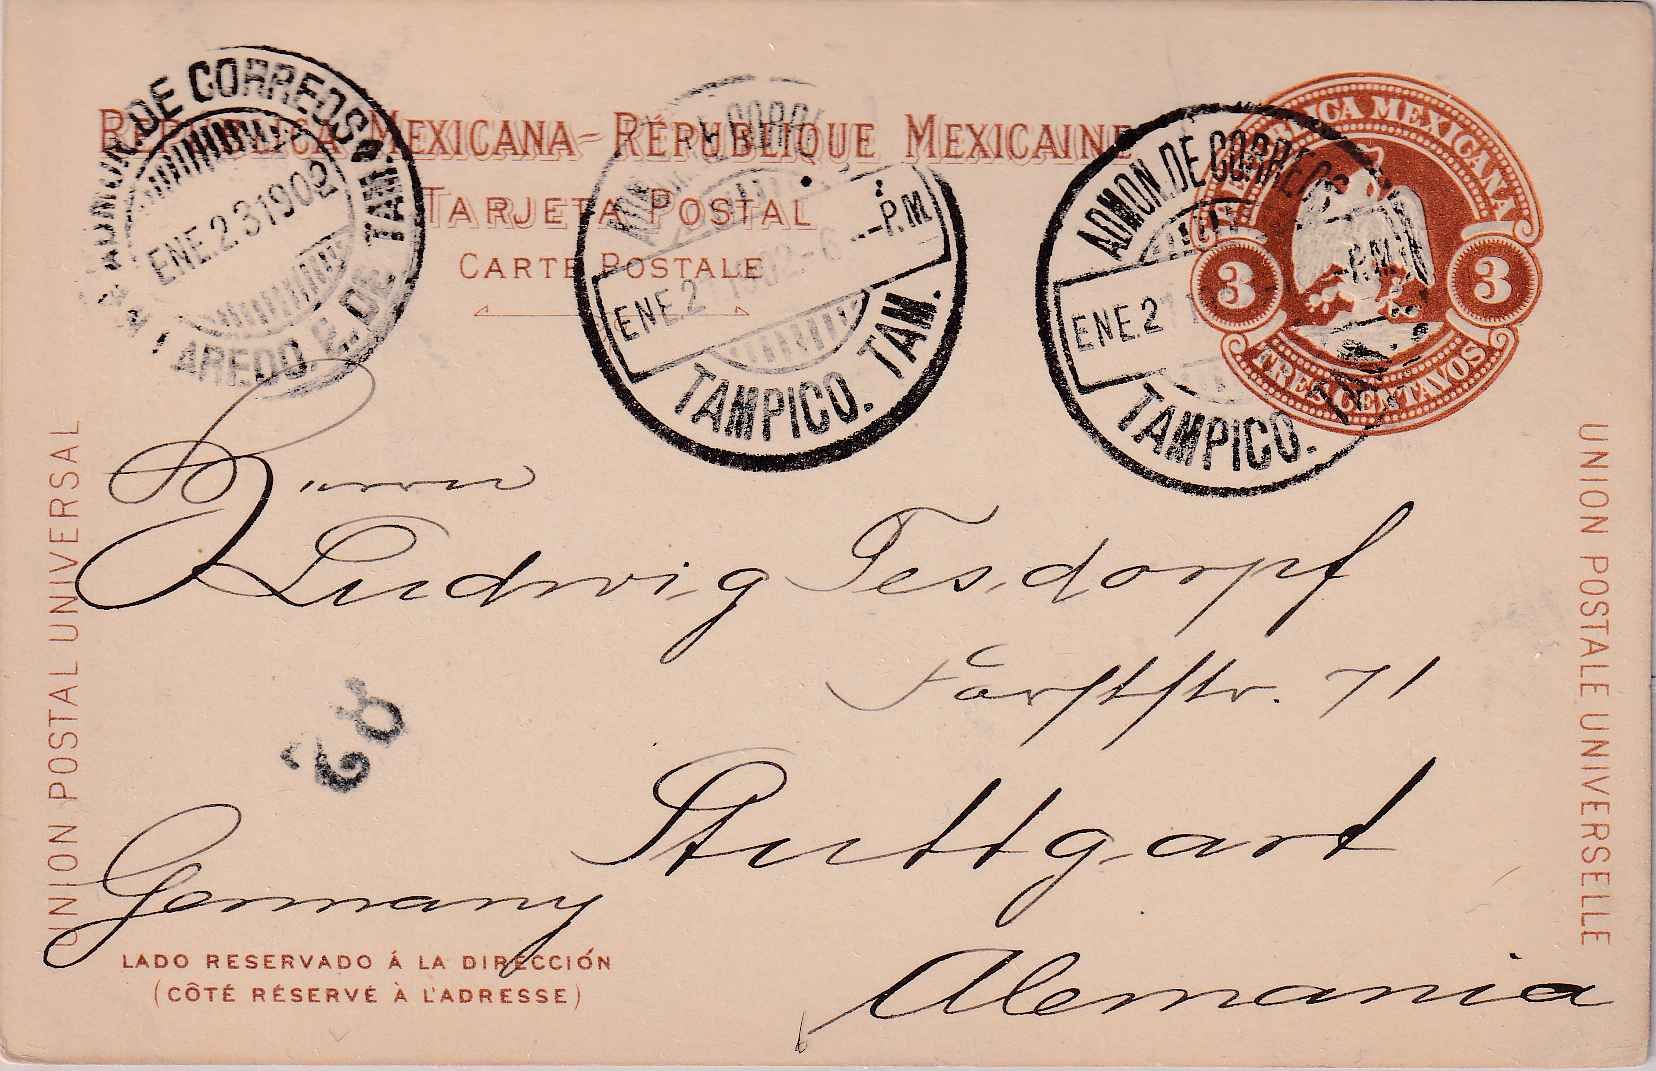 REPUBLICA MEXICANA – RÉPUBLIQUE MEXICAINE
TARJETA POSTAL
CARTE POSTALE
ADMON. DE CORREOS
ENE. 23 1902
LAREDO P. DE TAM.
ADMON. DE CORREOS
ENE. 21 1902-6 -P.M.
TAMPICO. TAM.
ADMON. DE CORREOS
ENE. 21 -P.M.
TAMPICO. TAM.
REPUBLICA MEXICANA
3 3
TRES CENTAVOS
UNION POSTAL UNIVERSAL
UNION POSTALE UNIVERSELLE
Herrn
Ludwig Tesdorpf
Forststr. 71
Stuttgart
Germany
Alemania
LADO RESERVADO Á LA DIRECCIÓN
(CÔTÉ RÉSERVÉ À L'ADRESSE)